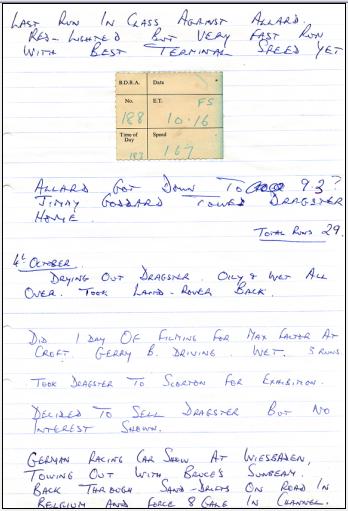 LAST RUN IN CLASS AGAINST ALLARD.
RED-LIGHTED BUT VERY FAST RUN
WITH BEST TERMINAL SPEED YET
B.D.R.A. Date
No. E.T. FS
188 10.16
Time of Day Speed
167
ALLARD GOT DOWN TO 9.3?
JIMMY GODDARD TOWED DRAGSTER
HOME.
TOTAL RUNS 29.
4th OCTOBER.
DRYING OUT DRAGSTER. OILY & WET ALL
OVER. TOOK LAND-ROVER BACK.
DID 1 DAY OF FILMING FOR MAX FACTOR AT
CROFT. GERRY B. DRIVING. WET. 3 RUNS.
TOOK DRAGSTER TO SCORTON FOR EXHIBITION.
DECIDED TO SELL DRAGSTER BUT NO
INTEREST SHOWN.
GERMAN RACING CAR SHOW AT WIESBADEN,
TOWING OUT WITH BRUCE'S SUNBEAM.
BACK THROUGH SAND-DRIFTS ON ROAD IN
BELGIUM AND FORCE 8 GALE IN CHANNEL.